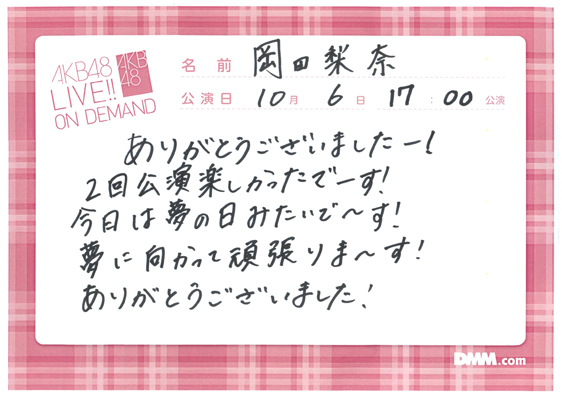 AKB48
LIVE!!
ON DEMAND
AKB
48
名前 岡田梨奈
公演日 10月 6日 17:00公演
ありがとうございましたー!
2回公演楽しかったでーす!
今日は夢の日みたいで〜す!
夢に向かって頑張りま〜す!
ありがとうございました!
DMM.com